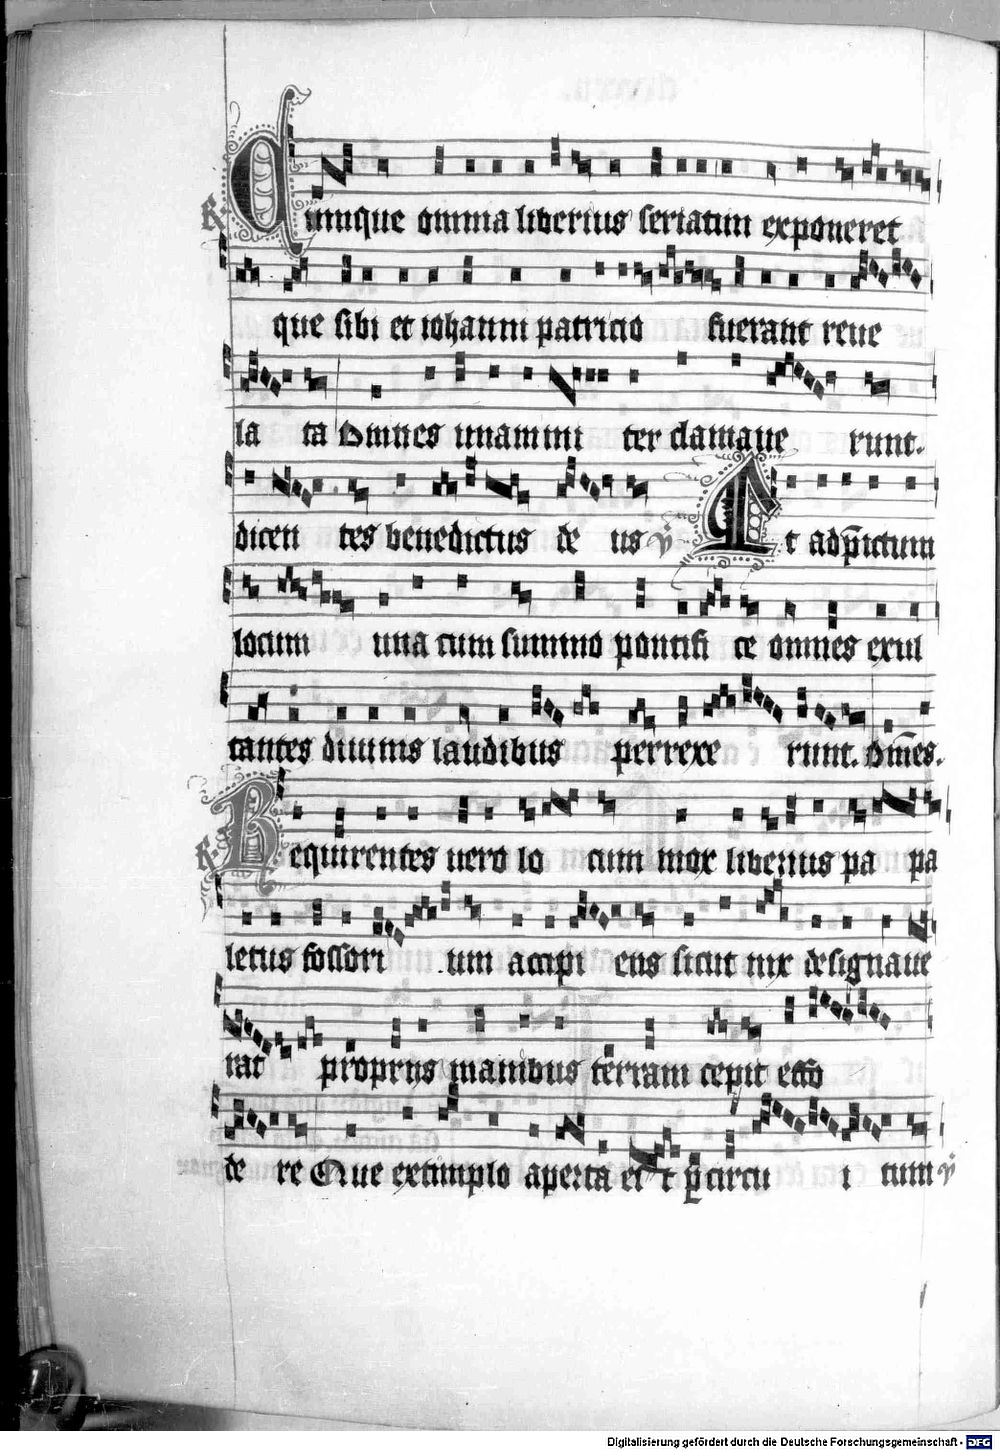 R Cumque omnia liberius seriatim exponeret
que sibi et iohanni patricio fuerant reue
la ta Omnes unanimi ter clamaue runt.
dicen tes benedictus de us ỹ Et ad p̄dictum
locum una cum summo pontifi ce omnes exul
tantes diuinis laudibus perrexe runt. Om̄es.
R Requirentes uero lo cum mox liberius pa pa
letus fossori um accipi ens sicut nix designaue
rat proprijs manibus terram cepit effo
de re Que extimplo aperta est circu i tum ỹ
Digitalisierung gefördert durch die Deutsche Forschungsgemeinschaft - DFG